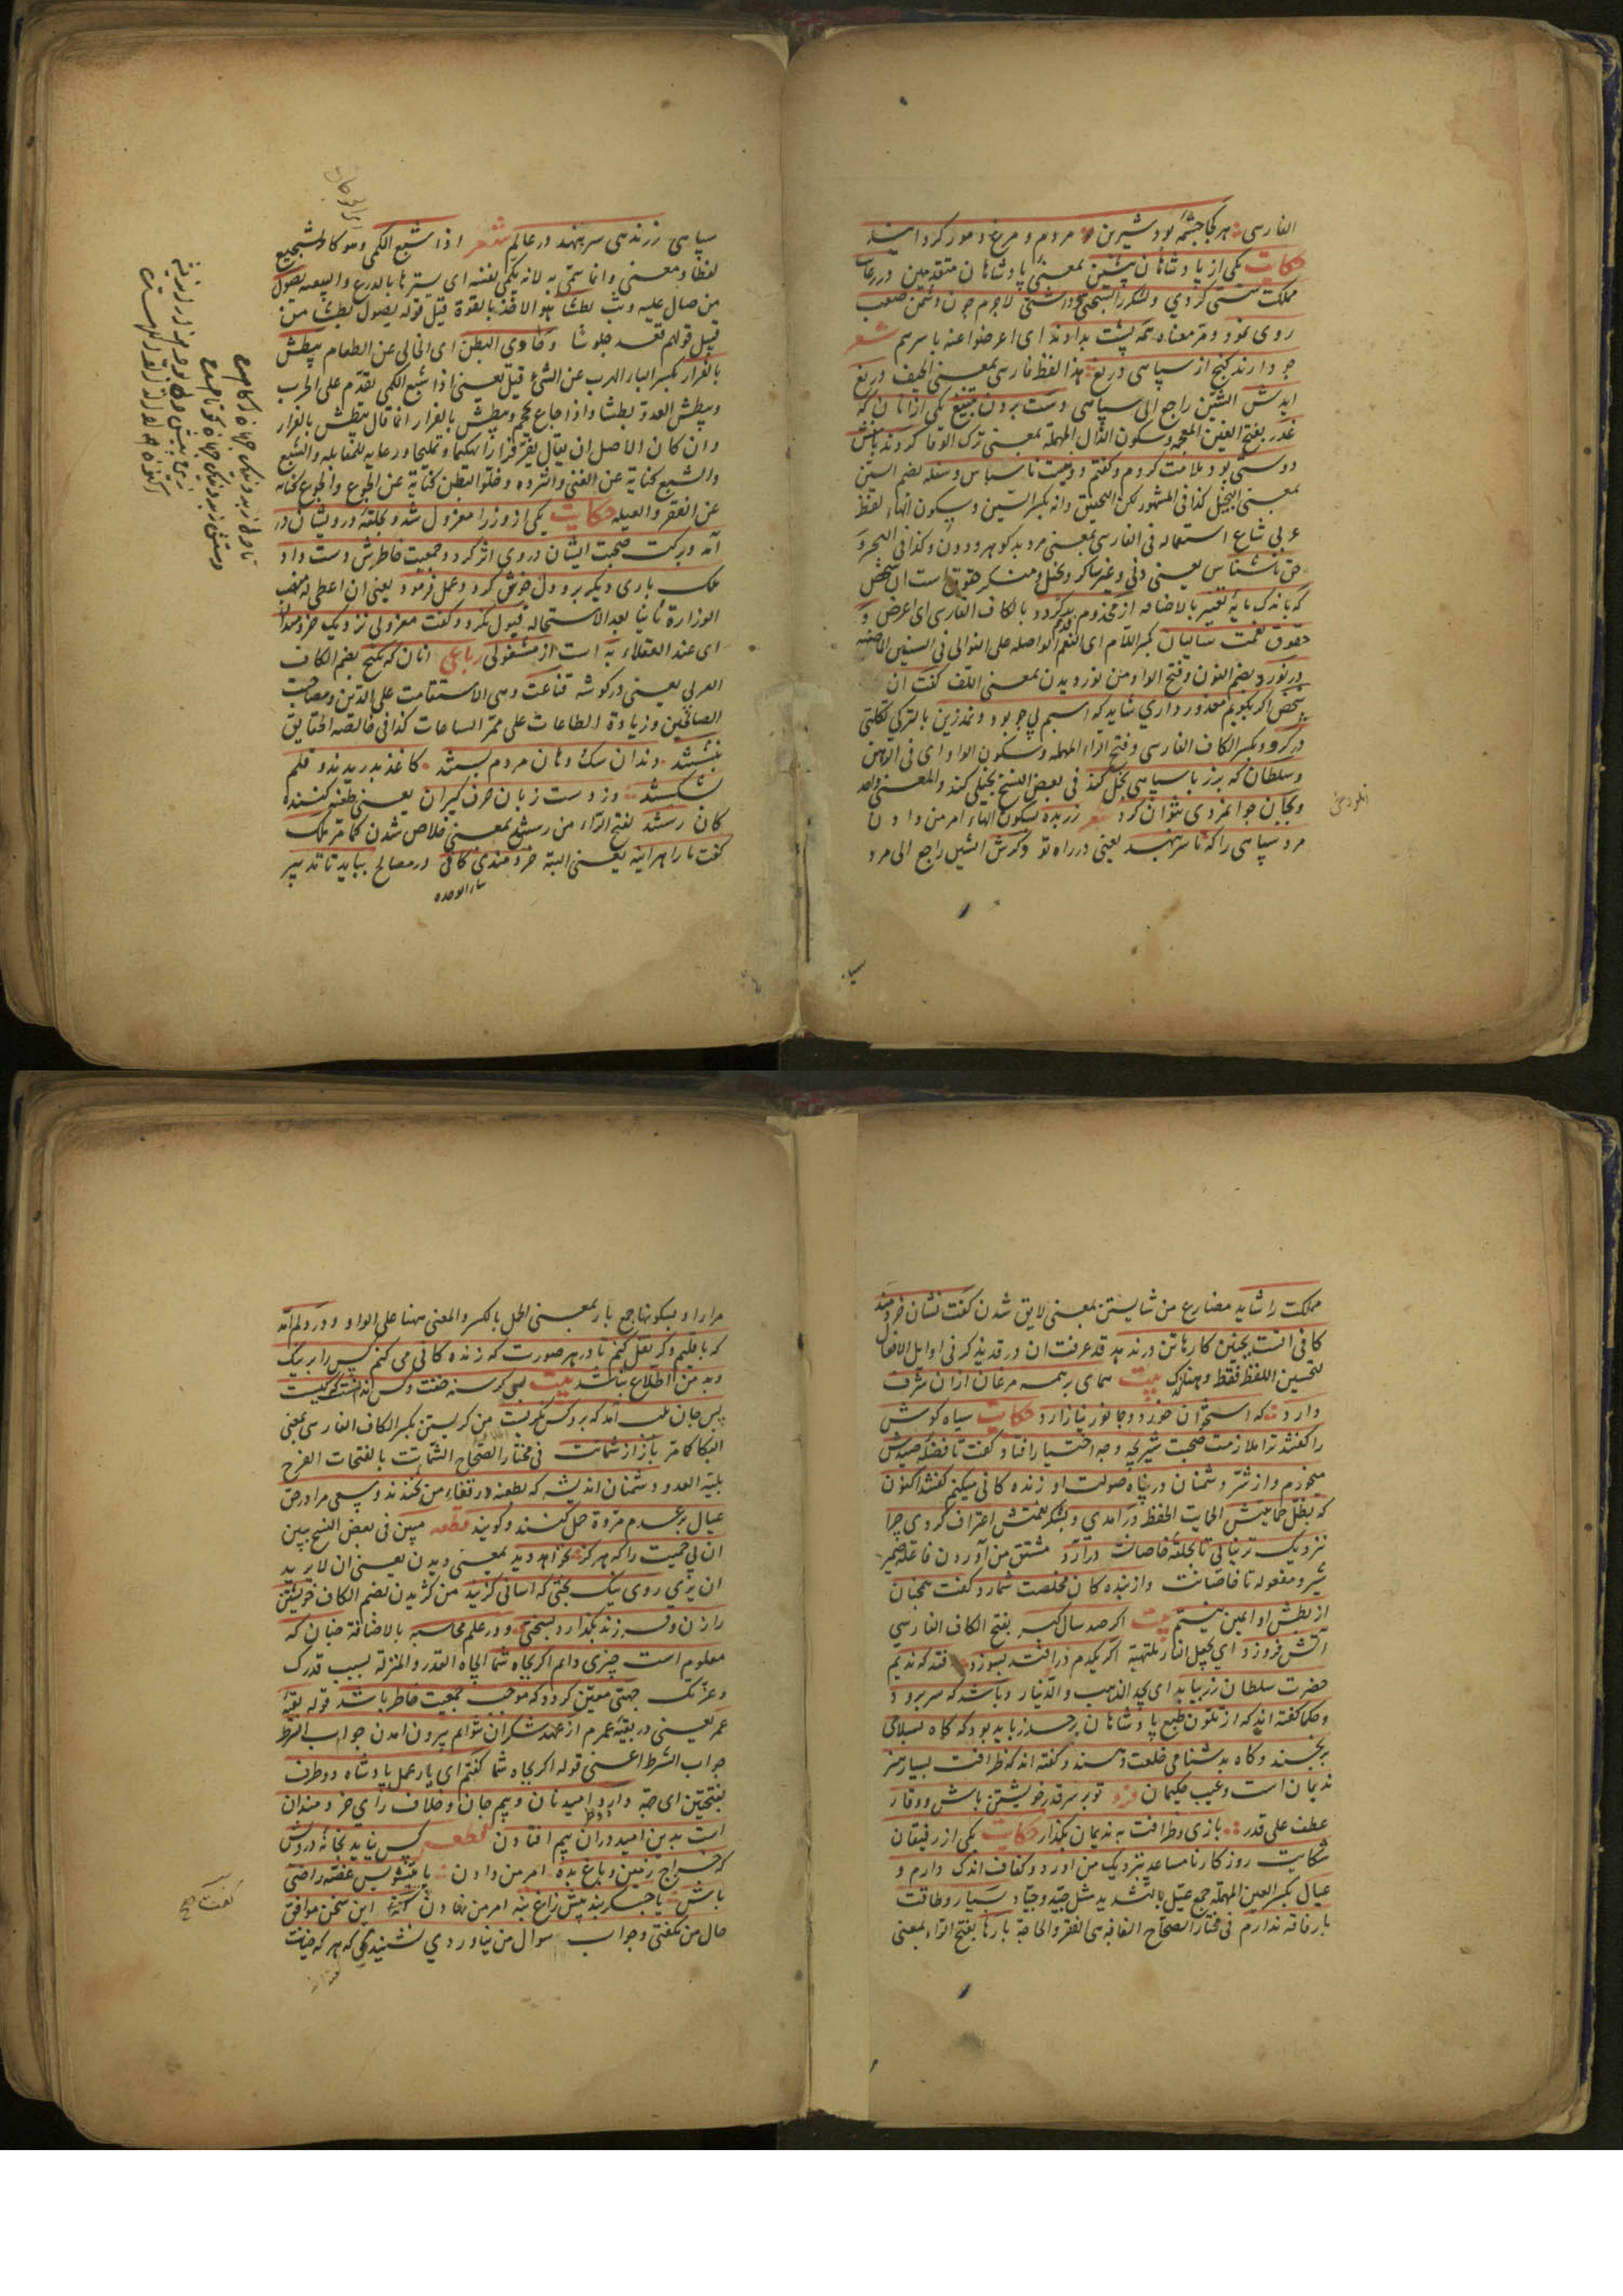 الفارسی هر کجا چشمهٔ بود شیرین مردم و مرغ و مور گرد آیند
حکایت یکی از پادشاهان پیشین بمعنی پادشاهان متقدمین در رعایت
مملکت سستی کردی و لشکر را بسختی داشتی لاجرم چون دشمن صعب
روی نمود و مر معناه همه پشت بدادند ای اعرضوا عنه باسرهم شعر
چو دارند گنج از سپاهی دریغ هذا لفظ فارسی بمعنی الحیف دریغ
ایدش الشین راجع الی سپاهی دست بردن بتیغ یکی از آنان که
غدر بفتح الغین المعجمه و سکون الدال المهملة بمعنی ترک الوفا کردند بامنش
دوستی بود ملامت کردم و گفتم دونست ناسپاس و سفله بضم السین
بمعنی البخیل کذا فی المشهور لکن التحقیق انه بکسر السین و سکون الفاء لفظ
عربی شاع استعماله فی الفارسی بمعنی مرد بد گوهر و دون و کذا فی البحر و
حق ناشناس یعنی دنی و غیر شاکر و بخیل و منکر حقوق است ان شخص
که باندک مایهٔ تغییر بالاضافه از مخدوم قدیم برگردد بالکاف الفارسی ای اعرض و
حقوق نعمت سالیان بکسر اللام ای النعم الواصله علی التوالی فی السنین الماضیه
در نوردد بضم النون و فتح الواو من نوردیدن بمعنی اللف گفت ان
شخص اگر بگویم معذور داری شاید که اسبم بی جو بود و نمدزین بالترکی تکلتی
در گرو بکسر الکاف الفارسی و فتح الراء المهمله و سکون الواو ای فی الرهن
و سلطان که بزر با سپاهی بخل کند فی بعض النسخ بخیلی کند والمعنی واحد
و بجان جوانمردی نتوان کرد شعر زر بده بسکون الهاء امر من دادن
مرد سپاهی را که تا سر بنهد یعنی در راه تو و گرش الشین راجع الی مرد
سپاهی زر ندهی سر بنهد در عالم شعر اذا شبع الکمی وهو کالشجیع
لفظا و معنی وانما سمی به لانه یکمی نفسه ای یسترها بالدرع والبیضه یصول
من صال علیه وثب بطشا هو الاخذ بالقوة قیل قوله یصول بطشا من
قبیل قولهم قعد جلوسا وخاوی البطن ای الخالی عن الطعام یبطش
بالفرار بکسر الفاء الهرب عن الشئ قیل یعنی اذا شبع الکمی تقدم علی الحرب
ویبطش العدو بطشا واذا جاع یبطش بالفرار انما قال یبطش بالفرار
وان کان الاصل ان یقال یفر فرارا تهکما وتملیحا ورعایة للمقابله والشبع
والشبع کنایة عن الغنی والثروه وخلو البطن کنایة عن الجوع والجوع کنایه
عن الفقر والعیله حکایت یکی از وزرا معزول شد و بحلقهٔ درویشان در
آمد و برکت صحبت ایشان در وی اثر کرد و جمعیت خاطرش دست داد
ملک باری دیگر برو دل خوش کرد و عمل فرمود یعنی ان اعطی له منصب
الوزارة ثانیا بعد الاستماله قبول نکرد و گفت معزولی نزدیک خردمندان
ای عند العقلاء به است از مشغولی رباعی انان که بکنج بضم الکاف
العربی یعنی در گوشه قناعت وهی الاستقامت علی الدین ومصاحبت
الصالحین وزیادة الطاعات علی ممر الساعات کذا فی خالصه الحقایق
بنشستند دندان سگ و دهان مردم بستند کاغذ بدریدند و قلم
بشکستند وز دست زبان حرف گیران یعنی طعنه کنندگان
کان رستند بفتح الراء من رستن بمعنی خلاص شدن کما مر ملک
گفت ما را هراینه یعنی البته خردمندی کافی در مصالح بباید تا تدبیر
مملکت را شاید مضارع من شایستن بمعنی لایق شدن گفت نشان خردمند
کافی آنست بچنین کارها تن در ندهد قد عرفت ان در قد یذکر فی اوایل الافعال
لتحسین اللفظ فقط وههنا کذلک بیت همای بر همه مرغان ازان شرف
دارد که استخوان خورد و جانور نیازارد حکایت سیاه گوش
را گفتند ترا ملازمت صحبت شیر بچه وجه اختیار افتاد گفت تا فضلهٔ صیدش
میخورم و از شر دشمنان در پناه صولت او زنده کانی میکنم گفتند اکنون
که بظل حمایتش الحمایت الحفظ درآمدی و بشکر نعمتش اعتراف کردی چرا
نزدیک تر نیایی تا بحلقهٔ خاصانت درآرد مشتق من آوردن فاعله ضمیر
شیر ومفعوله تا خاصانت و از بنده کان مخلصت شمارد گفت همچنان
از بطش او ایمن نیستم بیت اگر صد سال گبر بفتح الکاف الفارسی
آتش فروزد ای یجعل النار ملتهبة اگر یکدم درافتد بسوزد افتد که ندیم
حضرت سلطان زر بیابد ای یجد الذهب والدینار و باشد که سر برود
و حکما گفته اند که از تلون طبع پادشاهان برحذر باید بود که گاه بسلامی
برنجند و گاه بدشنامی خلعت دهند و گفته اند که ظرافت بسیار هنر
ندیمان است و عیب حکیمان فرد تو بر سر قدر خویشتن باش و وقار
عطف علی قدر بازی و ظرافت به ندیمان بگذار حکایت یکی از رفیقان
شکایت روزگار نامساعد بنزدیک من آورد و کفاف اندک دارم و
عیال بکسر العین المهملة جمع عیل بالتشدید مثل جید و جیاد بسیار و طاقت
بار فاقه ندارم فی مختار الصحاح الفاقه هی الفقر والحاجة بارها بفتح الراء بمعنی
مرارا و بسکونها جمع بار بمعنی الحمل بالکسر والمعنی ههنا علی الاول و در دلم آمد
که باقلیم دگر نقل کنم تا در هر صورت که زنده کانی می کنم کس را بر نیک
و بد من اطلاع نباشد بیت بس گرسنه خفت و کس ندانست که کیست
بس جان بلب آمد که برو کس نگریست من گریستن بکسر الکاف الفارسی بمعنی
البکا کما مر باز از شماتت فی مختار الصحاح الشماتت بالفتحات الفرح
ببلیة العدو دشمنان اندیشه که بطعنه در قفای من بخندند و سعی مرا در حق
عیال بر عدم مروة حمل کنند و گویند قطعه مبین فی بعض النسخ ببین
ان بی حمیت را که هرگز نخواهد دید بمعنی دیدن یعنی ان لا یرید
ان یری روی نیک بختی که اسانی گزیند من گزیدن بضم الکاف خویشتن
را زن و فرزند بگذارد بسختی و در علم محاسبه بالاضافة چنان که
معلوم است چیزی دانم اگر بجاه شما الجاه القدر والمنزلة بسبب قدرک
وعزتک جهتی معین گردد که موجب جمعیت خاطر باشد قوله بقیة
عمر یعنی در بقیهٔ عمرم از عهد شکر ان توانم بیرون امدن جواب الشرط
جواب الشرط اعنی قوله اگر بجاه شما گفتم ای یار عمل پادشاه دو طرف
بفتحتین ای جهة دارد امید نان و بیم جان و خلاف رای خردمندان
است بدین امید دران بیم افتادن قطعه کس نیاید بخانهٔ درویش
که خراج زمین و باغ بده امر من دادن یا بتشویش غصه راضی
باش یا جگربند پیش زاغ بنه امر من نهادن گفتا این سخن موافق
حال من نگفتی و جواب سوال من نیاوردی نشنیدی که هر که خیانت